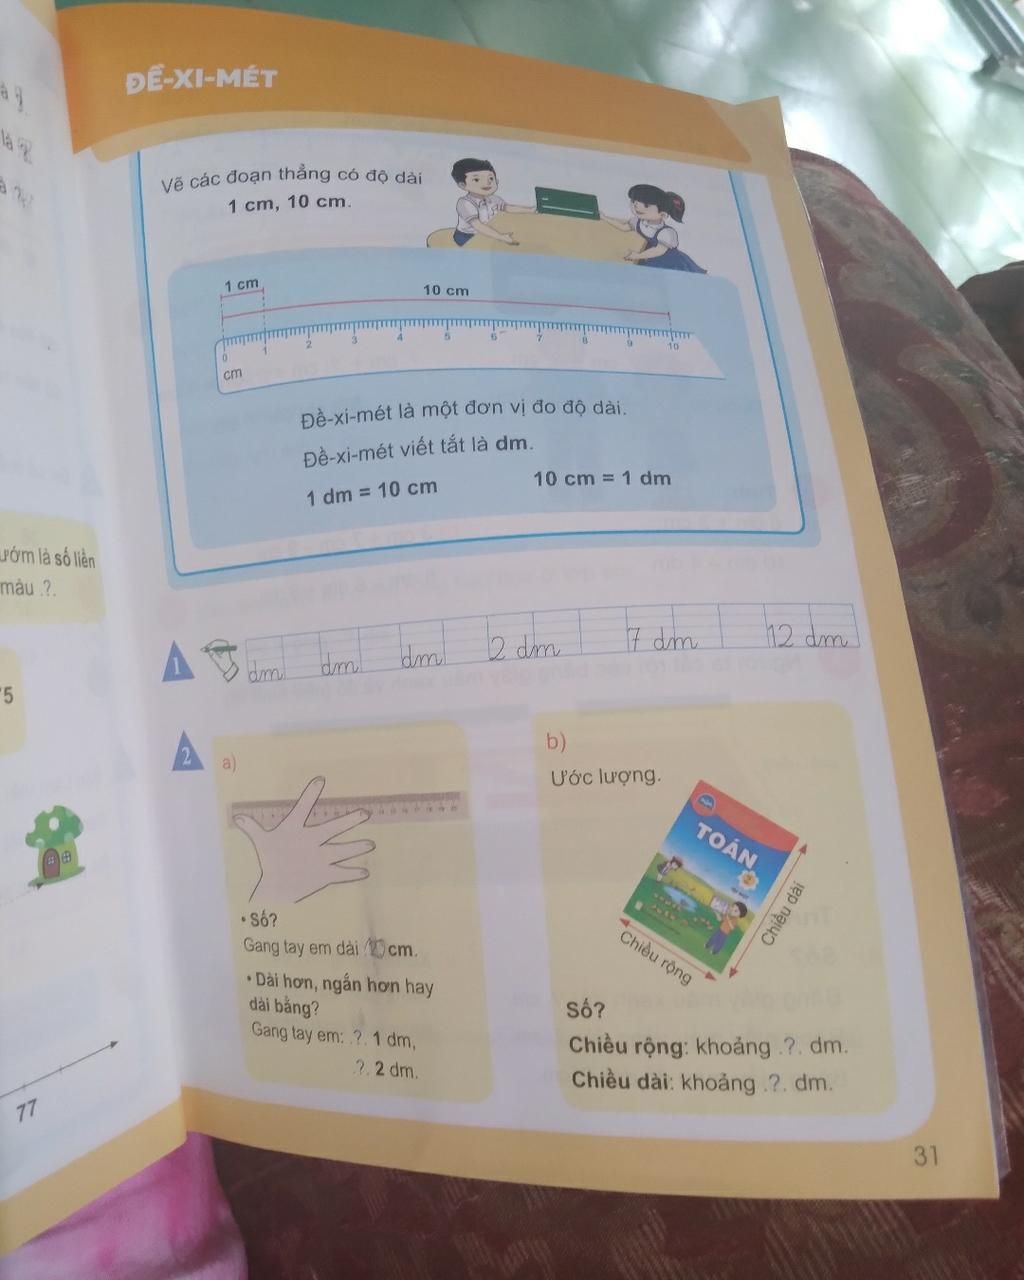 ĐỀ-XI-MÉT
Vẽ các đoạn thẳng có độ dài
1 cm, 10 cm.
1 cm
10 cm
0 1 2 3 4 5 6 7 8 9 10
cm
Đề-xi-mét là một đơn vị đo độ dài.
Đề-xi-mét viết tắt là dm.
1 dm = 10 cm 10 cm = 1 dm
là
ướm là số liền
màu .?.
75
77
1
dm dm dm 2 dm 7 dm 12 dm
2
a)
• Số?
Gang tay em dài cm.
• Dài hơn, ngắn hơn hay
dài bằng?
Gang tay em: .?. 1 dm,
.?. 2 dm.
b)
Ước lượng.
TOÁN
2
Chiều dài
Chiều rộng
Số?
Chiều rộng: khoảng .?. dm.
Chiều dài: khoảng .?. dm.
31